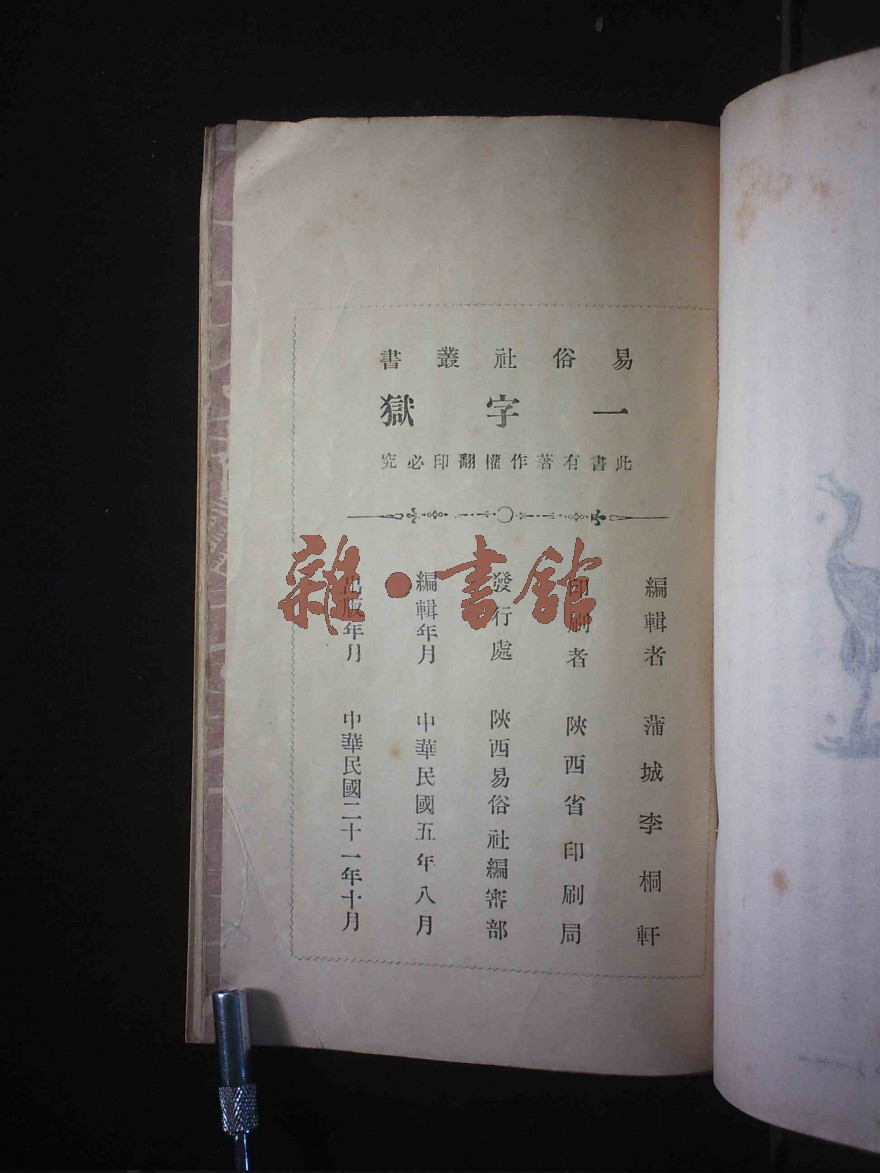 易俗社叢書
一字獄
此書有著作權翻印必究
編輯者　蒲城李桐軒
印刷者　陝西省印刷局
發行處　陝西易俗社編審部
編輯年月　中華民國五年八月
出版年月　中華民國二十一年十月
雜·書館